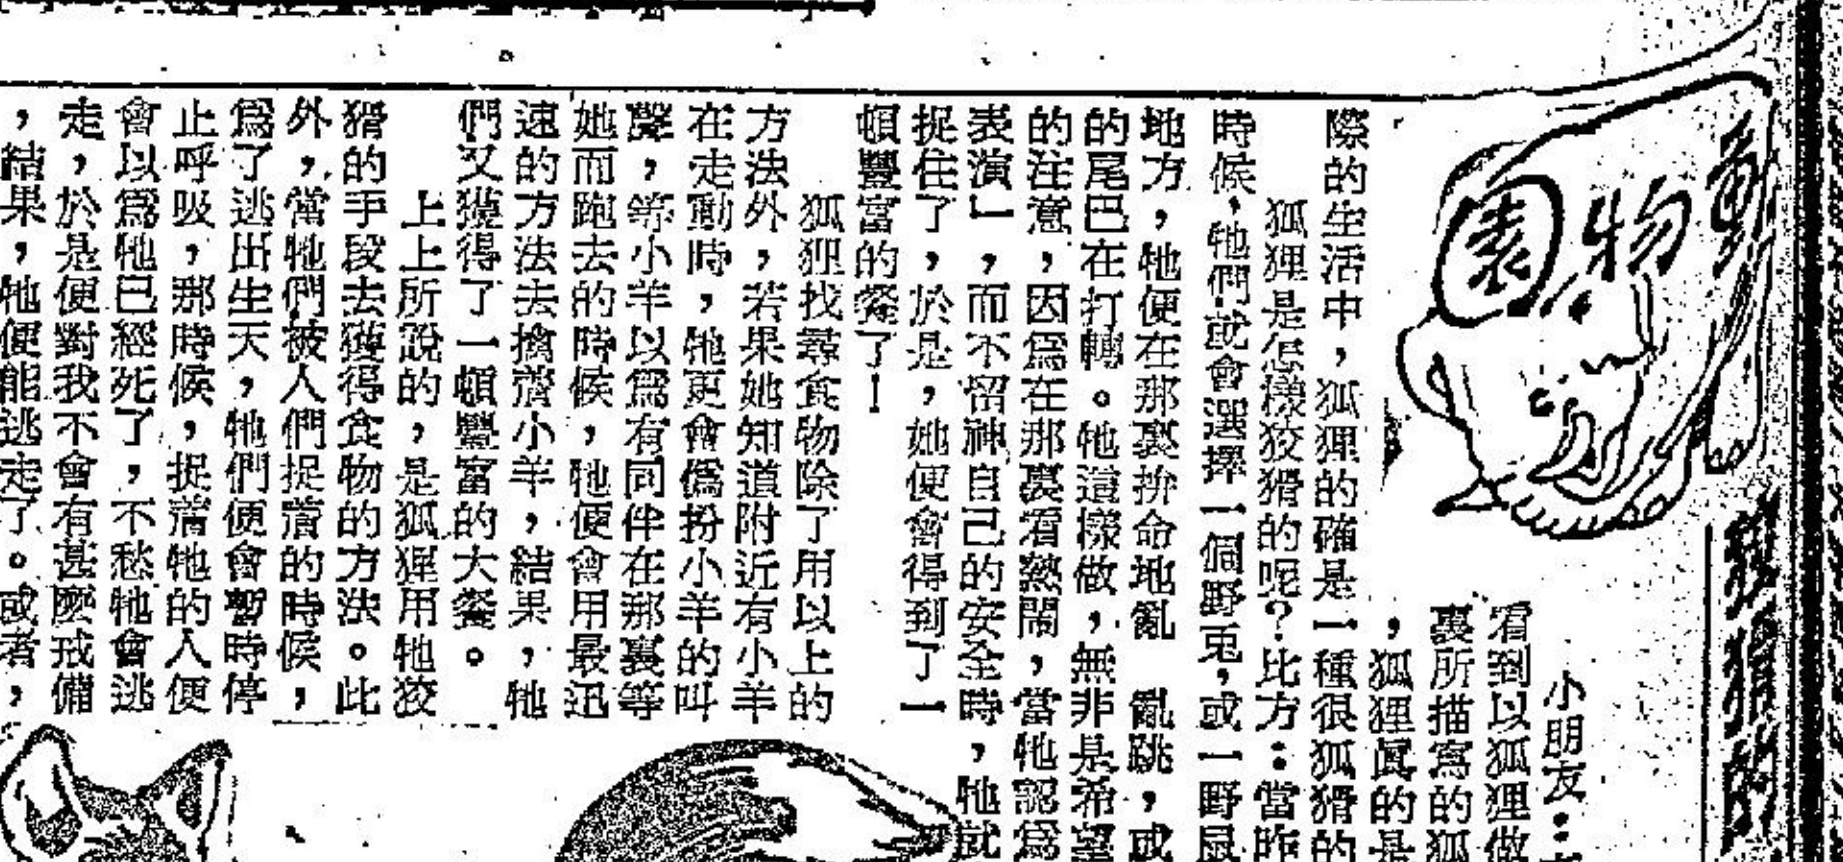 動物園
狡猾的
小朋友：
看到以狐狸做
裏所描寫的狐
，狐狸眞的是
際的生活中，狐狸的確是一種很狐猾的
狐狸是怎樣狡猾的呢？比方：當昨
時候，牠們就會選擇一個野兎，或一野鼠
地方，牠便在那裏拚命地亂　亂跳，或
的尾巴在打轉。牠這樣做，無非是希望
的注意，因爲在那裏看熱鬧，當牠認爲
表演」，而不留神自己的安全時，牠就
捉住了，於是，她便會得到了一
頓豐富的餐了！
狐狸找尋食物除了用以上的
方法外，若果她知道附近有小羊
在走動時，牠更會僞扮小羊的叫
聲，等小羊以爲有同伴在那裏等
她而跑去的時候，牠便會用最迅
速的方法去擒着小羊，結果，牠
們又獲得了一頓豐富的大餐。
上上所說的，是狐狸用牠狡
猾的手段去獲得食物的方法。此
外，當牠們被人們捉着的時候，
爲了逃出生天，牠們便會暫時停
止呼吸，那時候，捉着牠的人便
會以爲牠已經死了，不愁牠會逃
走，於是便對我不會有甚麽戒備
，結果，牠便能逃走了。或者，